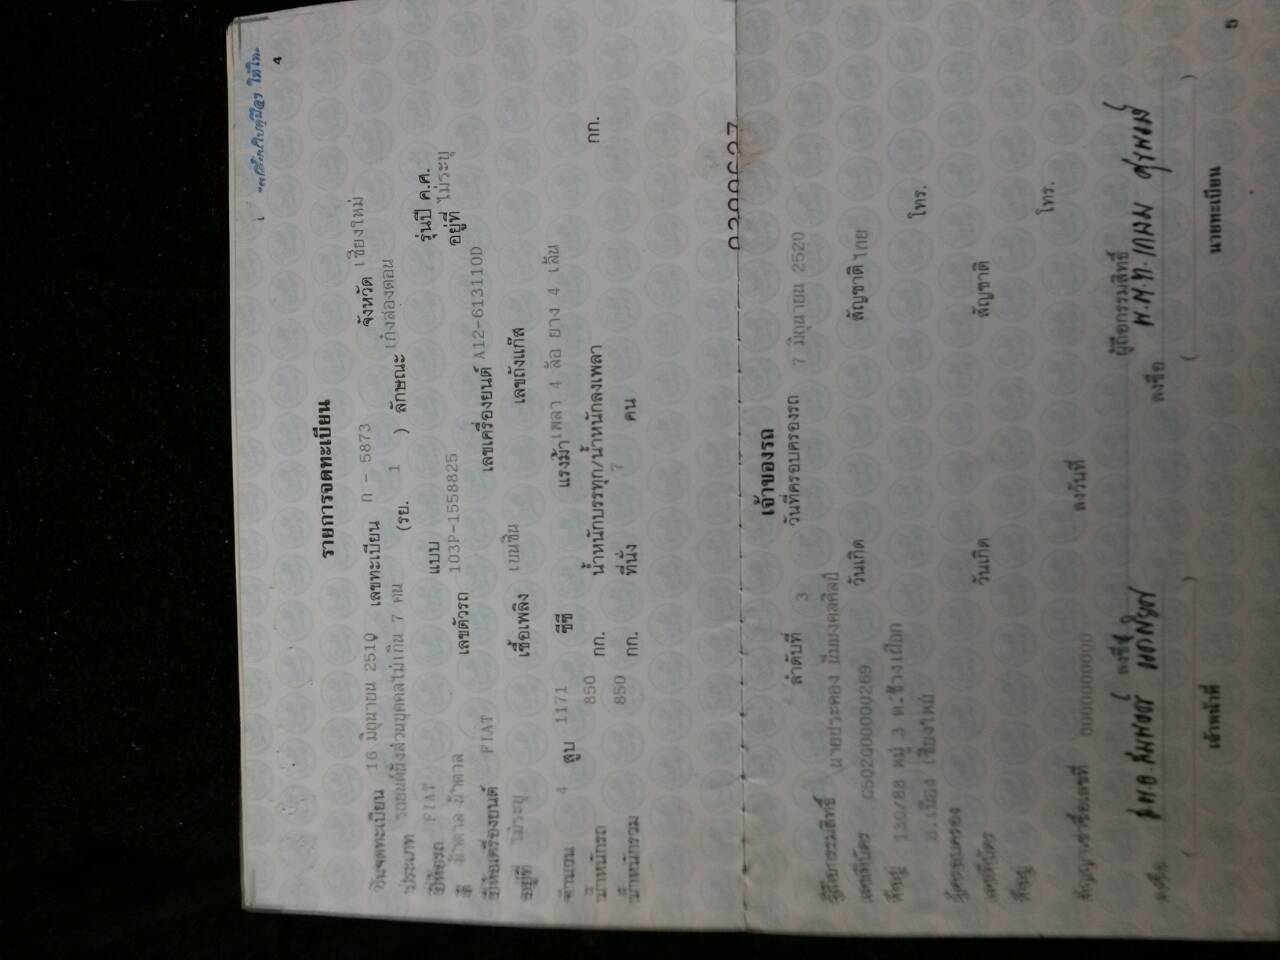 4
รายการจดทะเบียน
วันจดทะเบียน 16 มิถุนายน 2510 เลขทะเบียน ก - 5873 จังหวัด เชียงใหม่
ประเภท รถยนต์นั่งส่วนบุคคลไม่เกิน 7 คน (รย. 1 ) ลักษณะ เก๋งสองตอน
ยี่ห้อรถ FIAT แบบ รุ่นปี ค.ศ.
สี น้ำตาล น้ำตาล เลขตัวรถ 103P-1558825 อยู่ที่ ไม่ระบุ
ยี่ห้อเครื่องยนต์ FIAT เลขเครื่องยนต์ A12-613110D
อยู่ที่ ไม่ระบุ เชื้อเพลิง เบนซิน เลขถังแก๊ส
จำนวน 4 สูบ 1171 ซีซี แรงม้า เพลา 4 ล้อ ยาง 4 เส้น
น้ำหนักรถ 850 กก. น้ำหนักบรรทุก/น้ำหนักลงเพลา กก.
น้ำหนักรวม 850 กก. ที่นั่ง 7 คน
5
เจ้าของรถ
ลำดับที่ 3 วันที่ครอบครองรถ 7 มิถุนายน 2520
ผู้ถือกรรมสิทธิ์ นายประคอง ยิ้มมงคลศิลป์
เลขที่บัตร G502G00000269 วันเกิด สัญชาติ ไทย
ที่อยู่ 130/88 หมู่ 3 ต.ช้างเผือก โทร.
อ.เมือง เชียงใหม่
ผู้ครอบครอง
เลขที่บัตร วันเกิด สัญชาติ
ที่อยู่ โทร.
สัญญาเช่าซื้อเลขที่ 00000000000 ลงวันที่
ลงชื่อ ผู้ถือกรรมสิทธิ์
ลงชื่อ ลงชื่อ
( ) ( )
เจ้าหน้าที่ นายทะเบียน